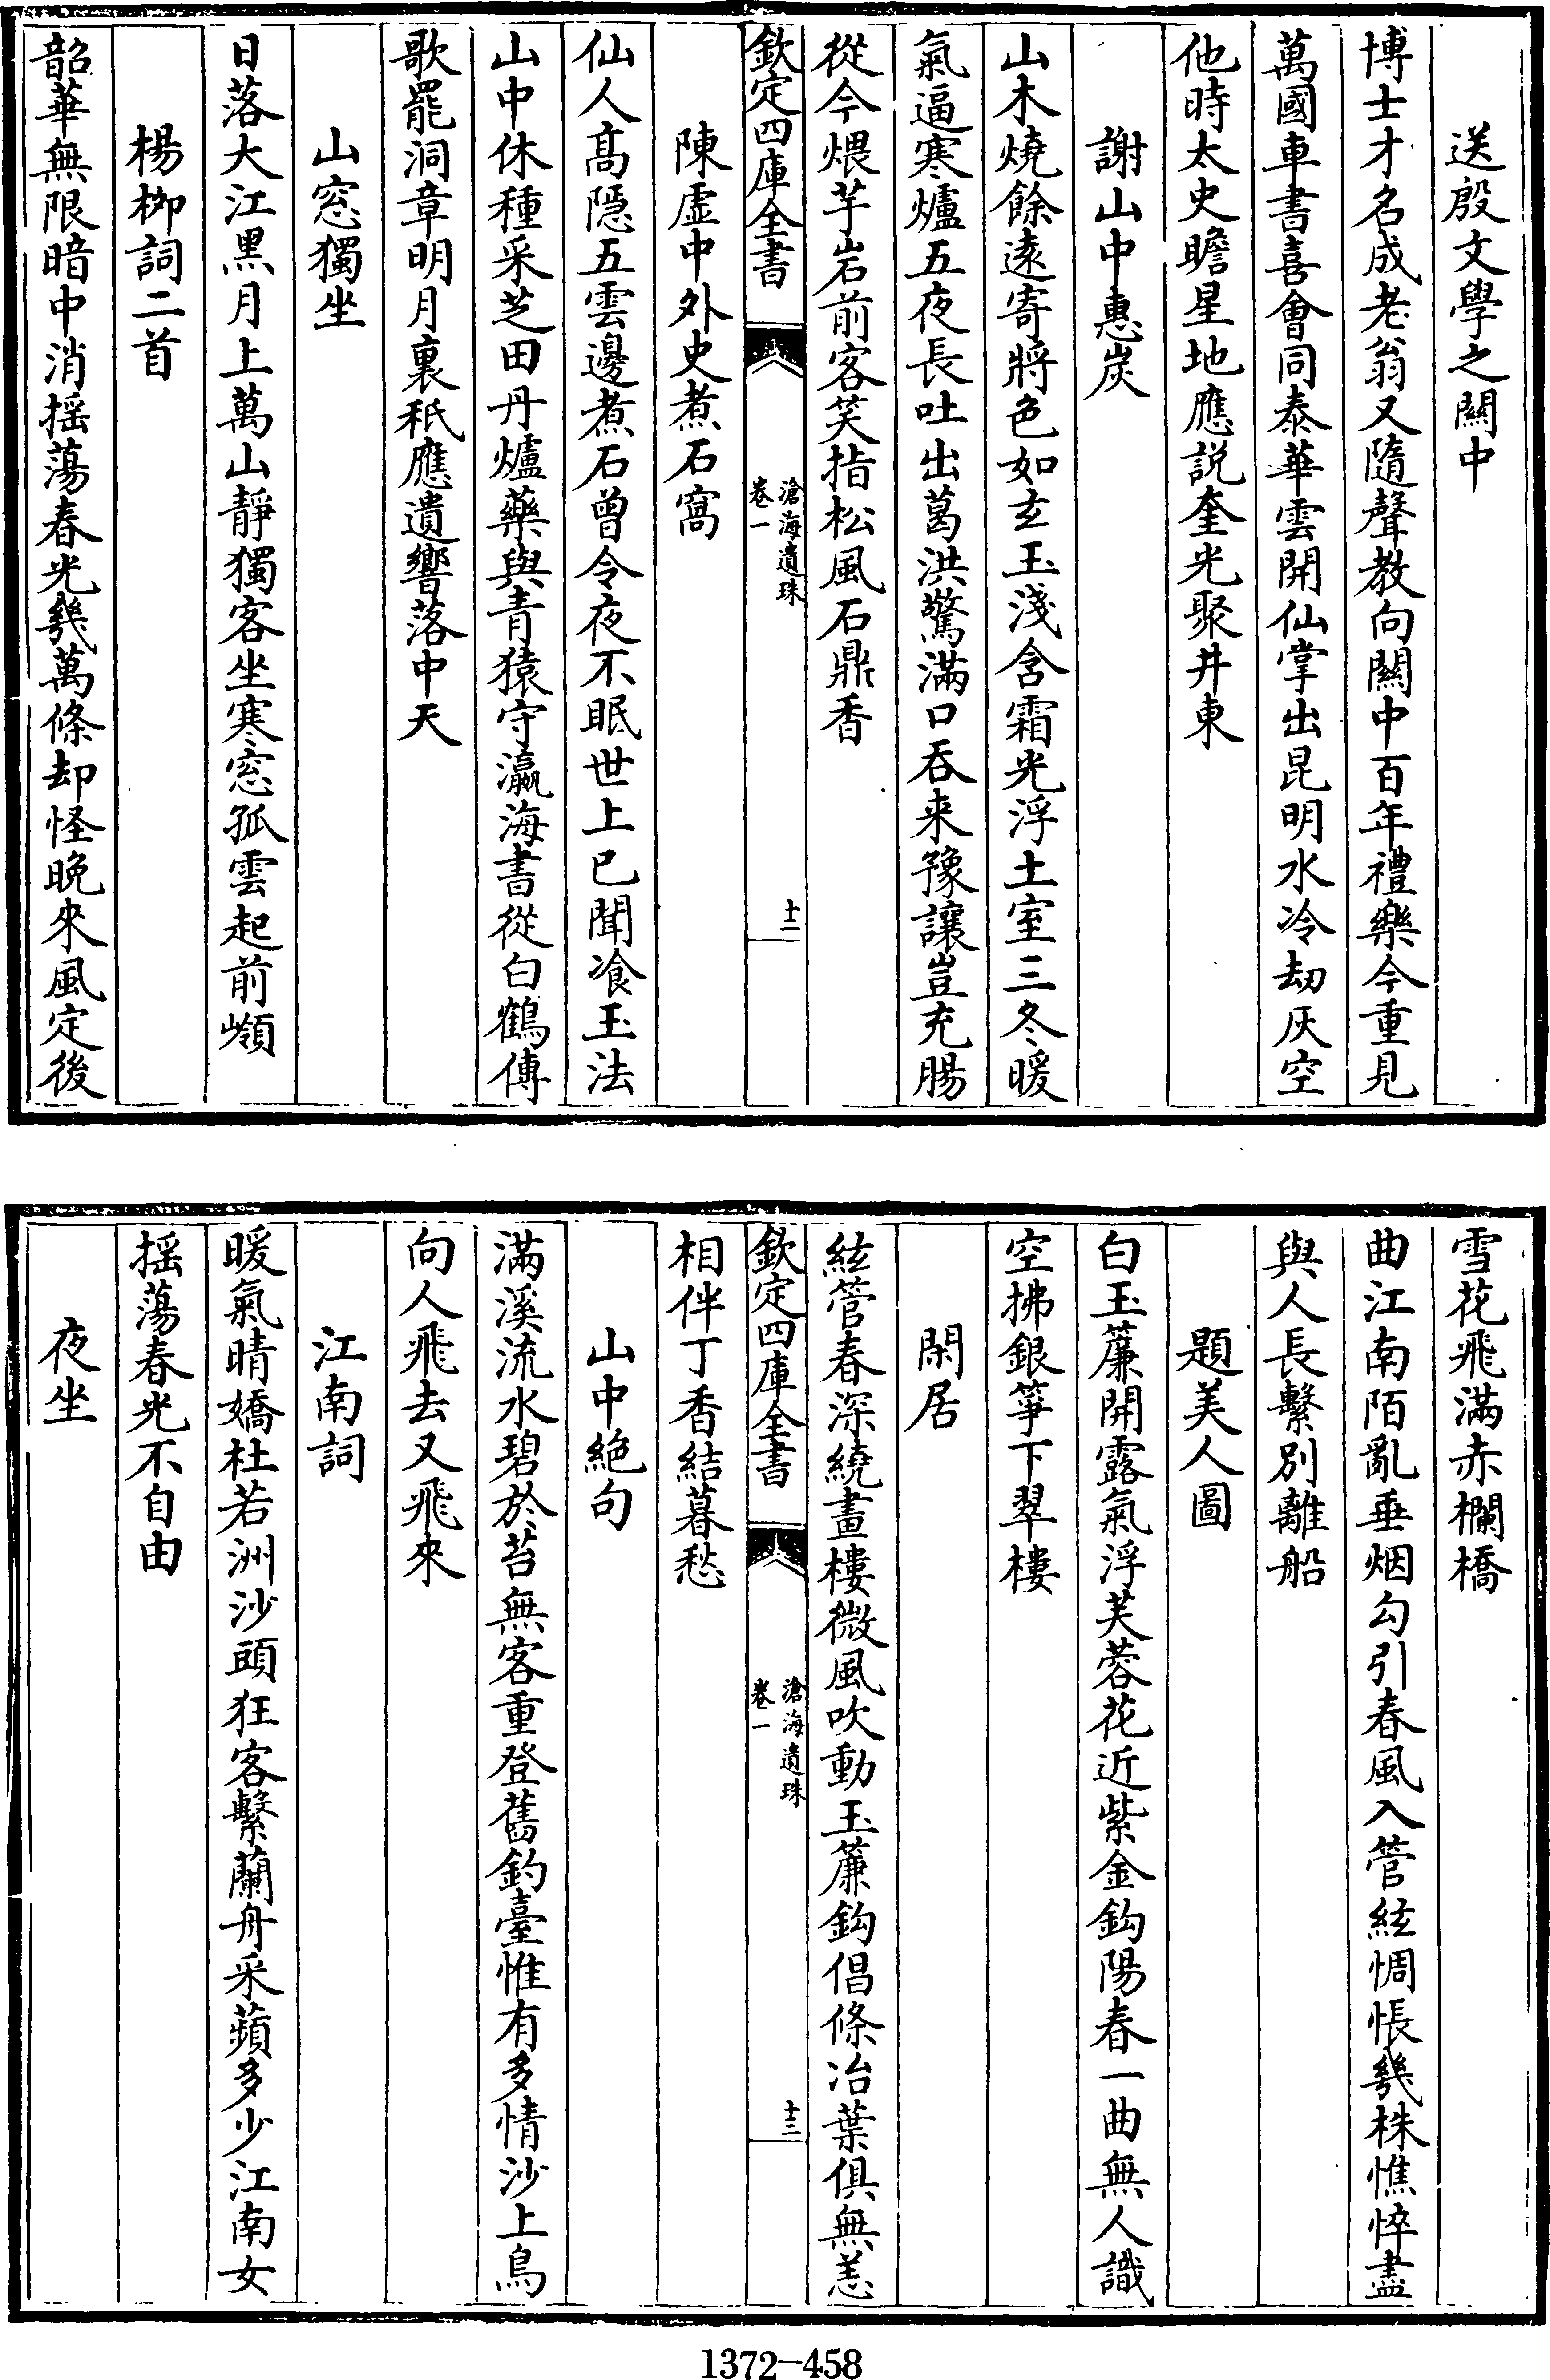 送殷文學之關中
博士才名成老翁又隨聲教向關中百年禮樂今重見
萬國車書喜會同泰華雲開仙掌出昆明水冷劫灰空
他時太史瞻星地應説奎光聚井東
謝山中惠炭
山木燒餘遠寄將色如玄玉淺含霜光浮土室三冬暖
氣逼寒爐五夜長吐出葛洪驚滿口吞来豫讓豈充腸
從今煨芋岩前客笑指松風石鼎香
欽定四庫全書
滄海遺珠
卷一
十二
陳虛中外史煮石窩
仙人高隱五雲邊煮石曾令夜不眠世上已聞飡玉法
山中休種采芝田丹爐藥與青猿守瀛海書從白鶴傳
歌罷洞章明月裏秖應遺響落中天
山窓獨坐
日落大江黑月上萬山靜獨客坐寒窓孤雲起前嶺
楊柳詞二首
韶華無限暗中消揺蕩春光幾萬條却怪晚來風定後
雪花飛滿赤欄橋
曲江南陌亂垂烟勾引春風入管絃惆悵幾株憔悴盡
與人長繫別離船
題美人圖
白玉簾開露氣浮芙蓉花近紫金鈎陽春一曲無人識
空拂銀箏下翠樓
閑居
絃管春深繞畫樓微風吹動玉簾鈎倡條冶葉俱無恙
欽定四庫全書
滄海遺珠
卷一
十三
相伴丁香結暮愁
山中絶句
滿溪流水碧於苔無客重登舊釣臺惟有多情沙上鳥
向人飛去又飛來
江南詞
暖氣晴嬌杜若洲沙頭狂客繫蘭舟采蘋多少江南女
揺蕩春光不自由
夜坐
1372-458